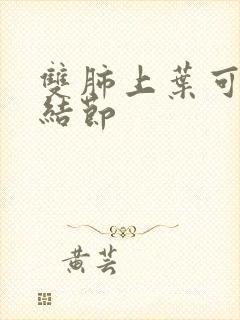 雙肺上葉可
結節
黃芸